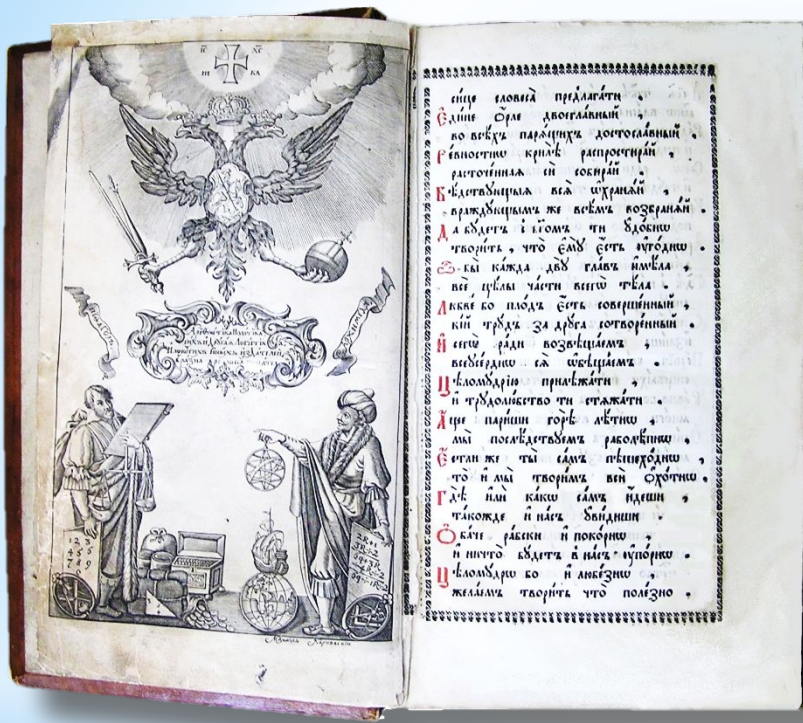 ІС ХС
НІ КА
Архимедъ
1 2 3
си́це словеса̀ предлага́ти ,
Є҆ди́не Ѻ҆рле двоегла́вный ,
во всѣ́хъ паря́щихъ достосла́вный .
Ре́вностїю крилѣ̀ распростира́й ,
расточе́нная сѝ собира́й .
Бѣ́дствующыя вся̀ ѡ҆храня́й ,
враждующымъ же всѣ̑мъ возбраня́й .
Да бу́детъ і҆ бг҃омъ тѝ ᲂу҆до́бнѡ
твори́ть , что̀ є҆мꙋ̀ є҆́сть ᲂу҆го́днѡ
Ѿбы̀ ка́жда двꙋ̀ гла́въ и҆мѣ́ла ,
всѐ цѣ́лы ча́сти всегѡ̀ тѣ́ла .
Любве́ бо пло́дъ є҆́сть соверше́нный ,
кі́й трꙋ́дъ за дрꙋ́га сотворе́нный .
И҆ сегѡ̀ ра́ди возвѣща́емъ ,
всеꙋсе́рднѡ сѧ̀ ѡ҆бѣща́емъ .
Цѣломꙋ́дрїю прилѣжа́ти ,
и҆ трꙋдолю́бство тѝ стяжа́ти .
А҆́ще пари́ши го́рѣ ле́тнѡ ,
мы̀ послѣ́дствуемъ раболѣ́пнѡ .
Є҆́стли же ты̀ са́мъ пѣшехо́днѡ ,
то̀ и҆ мы̀ твори́мъ всѝ ѻ҆хо́тнѡ .
Гдѣ̀ и҆лѝ ка́кѡ са́мъ и҆́деши ,
та́кожде и҆ на́съ ᲂу҆ви́диши .
Ѻ҆ба́че ра́бски и҆ поко́рнѡ ,
и҆ ничто̀ бу́детъ в на́съ ᲂу҆по́рнѡ .
Цѣломꙋ́дрѡ бо и҆ любе́знѡ ,
жела́емъ твори́ть что̀ поле́зно .